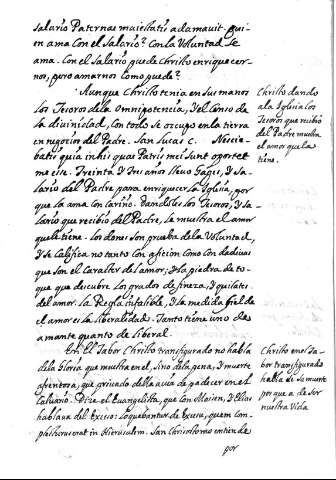 salario Paternas maiestatis adamauit. qui-
en ama con el salario? con la Voluntad se
ama. con el salario puede christo enrrique cer-
nos, pero amarnos como puede?
Aunque Christo tenia en sus manos
los Tesoros de la omnipotencia, y el censo de
la divinidad, con todo se occupo en la tierra
en negocios del Padre. San Lucas c. Nescie-
batis quia in his quae Patris mei sunt oportet
me esse. Treinta y tres años lleuo Gages, y sa-
lario del Padre para enrriquecer la Iglesia, por
que la ama con cariño. Dandoles los Tesoros, y sa-
lario que recibio del Padre, le muestra el amor
que le tiene. los dones son prueba de la Voluntad,
y se califica no tanto con aficion como con dadiuas
que son el carácter del amor; y la piedra de to-
que que descubre los grados de fineza, y quilates
del amor. la Regla infalible, y la medida fiel de
el amor es la liberalidad. Tanto tiene uno de
amante quanto de liberal.
En el Tabor Christo transfigurado no habla
de la Gloria que muestra en el, sino de la pena, y muerte
afrentosa, que priuado de la a de padecer en el
Caluario. Dize el Evangelista, que con Moisen, y Elias
hablaua del Exceso: loquebantur de excesu, quem com-
pleturus erat in Hierusalem. San Chrisostomo entiende
por
Christo dando
a la Iglesia los
Tesoros que recibio
del Padre muestra
el amor que la
tiene.
Christo en el Ta-
bor transfigurado
habla de su muerte
por que a de ser
nuestra Vida